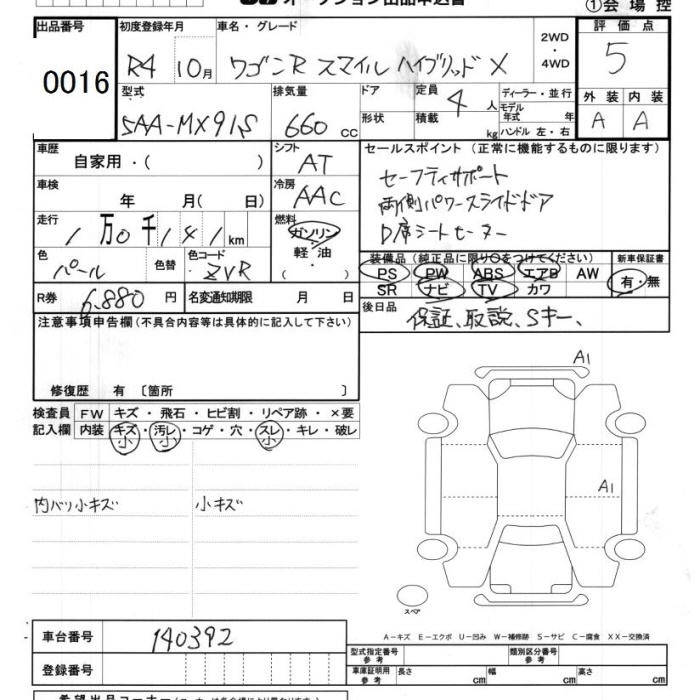 オークション出品申込書
①会場控
出品番号 0016
初度登録年月 R4 10月
車名・グレード ワゴンR スマイル ハイブリッド X
2WD・4WD
評価点 5
外装 A 内装 A
型式 5AA-MX91S
排気量 660 cc
ドア
形状
定員 4 人
積載 kg
ディーラー・並行
モデル年式 年
ハンドル 左・右
車歴 自家用・( )
シフト AT
セールスポイント (正常に機能するものに限ります)
セーフティサポート
両側パワースライドドア
D席シートヒーター
車検 年 月( 日)
冷房 AAC
走行 1万0千141km
燃料 ガソリン・軽油・( )
色 パール 色替
色コード ZVR
装備品 (純正品に限り○をつけてください)
PS PW ABS エアB AW
SR ナビ TV カワ
新車保証書 有・無
R券 6,880 円
名変通知期限 月 日
後日品 保証、取説、Sキー、
注意事項申告欄 (不具合内容等は具体的に記入して下さい)
修復歴 有 〔箇所 〕
検査員記入欄
FW キズ・飛石・ヒビ割・リペア跡・×要
内装 キズ・汚レ・コゲ・穴・スレ・キレ・破レ
小 小 小
内バリ小キズ
小キズ
A1
A1
スペア
A-キズ E-エクボ U-凹み W-補修跡 S-サビ C-腐食 XX-交換済
車台番号 140392
登録番号
型式指定番号 参考
類別区分番号 参考
車庫証明用 参考 長さ cm 幅 cm 高さ cm